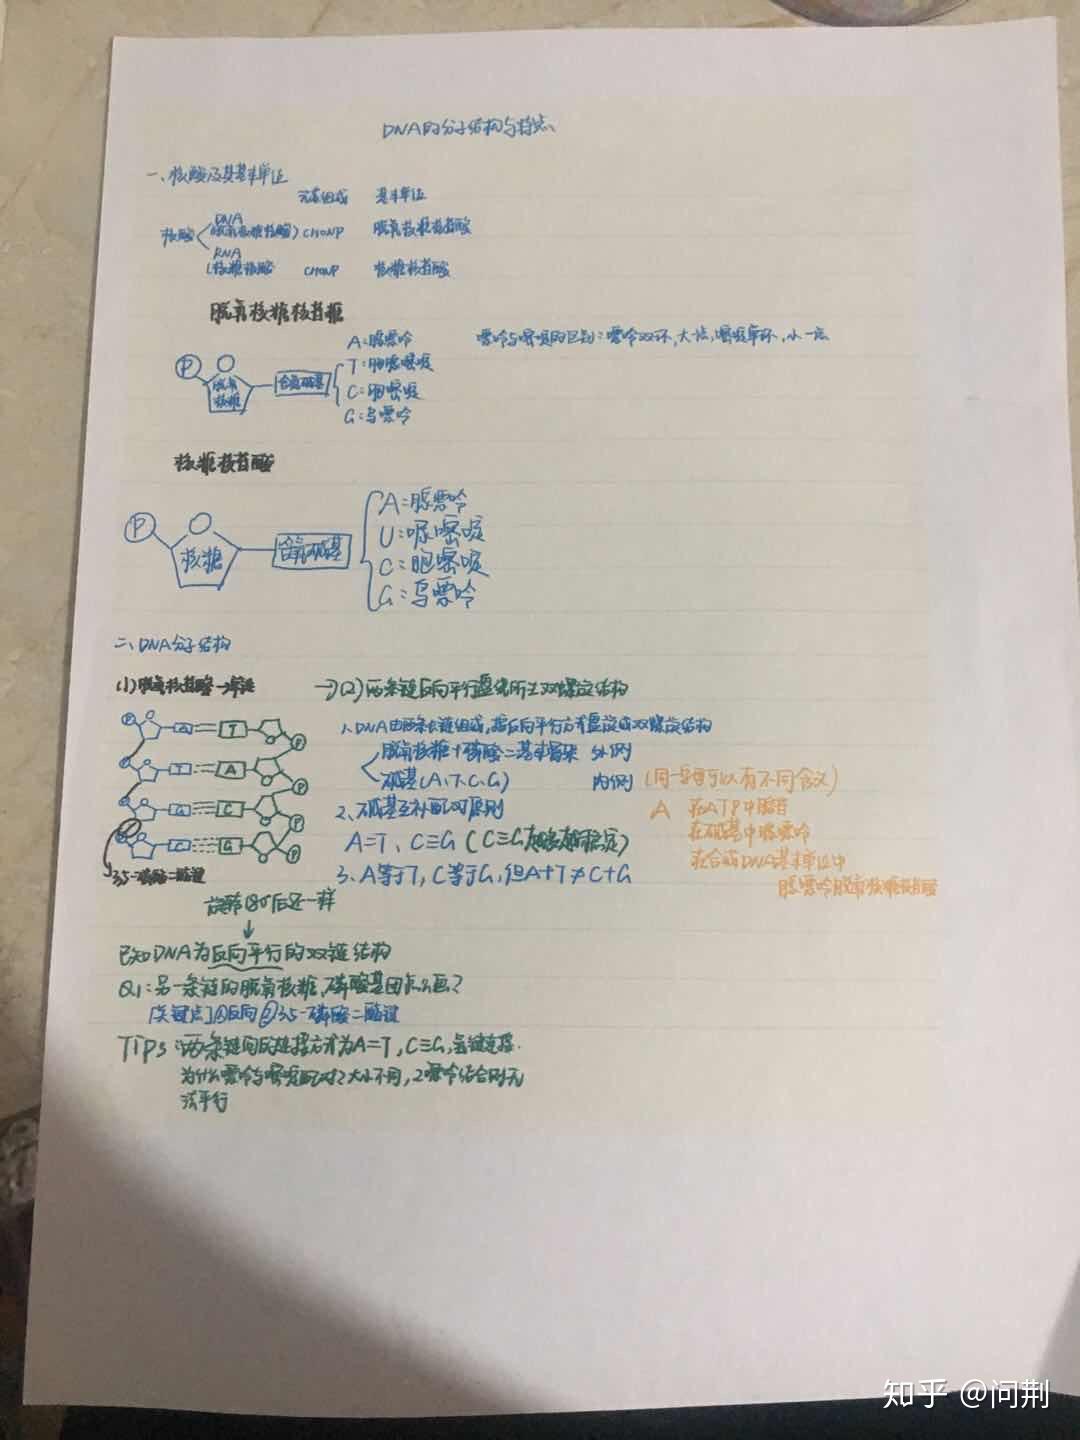 DNA的分子结构与特点
一、核酸及其基本单位
元素组成 基本单位
DNA
核酸 (脱氧核糖核酸) CHONP 脱氧核糖核苷酸
RNA
(核糖核酸 CHONP 核糖核苷酸
脱氧核糖核苷糖
A:腺嘌呤 嘌呤与嘧啶的区别:嘌呤双环,大一点,嘧啶单环,小一点
P 脱氧核糖 含氮碱基 T:胸腺嘧啶
C:胞嘧啶
G:鸟嘌呤
核糖核苷酸
A:腺嘌呤
P 核糖 含氮碱基 U:尿嘧啶
C:胞嘧啶
G:鸟嘌呤
二、DNA分子结构
(1)脱氧核苷酸→单链 →(2)两条链反向平行盘绕所生双螺旋结构
P A T P
T A P
G C P
C G P
3,5-磷酸二酯键
1、DNA由两条长链组成,按反向平行方式盘旋成双螺旋结构
脱氧核糖+磷酸=基本骨架 外侧
碱基(A、T、C、G) 内侧
2、碱基互补配对原则
A=T、C≡G(C≡G越多越稳定)
3、A等于T,C等于G,但A+T≠C+G
(同一字母可以有不同含义)
A 在ATP中腺苷
在碱基中腺嘌呤
在合成DNA基本单位中
腺嘌呤脱氧核糖核苷酸
旋转180°后还一样
已知DNA为反向平行的双链结构
Q1:另一条链的脱氧核糖,磷酸基团怎么画?
[关键点]①反向②3,5-磷酸二酯键
Tips:两条链间的连接方式为A=T,C≡G,氢键连接.
为什么嘌呤与嘧啶配对?大小不同,2嘌呤结合则无
法平行
知乎 @问荆